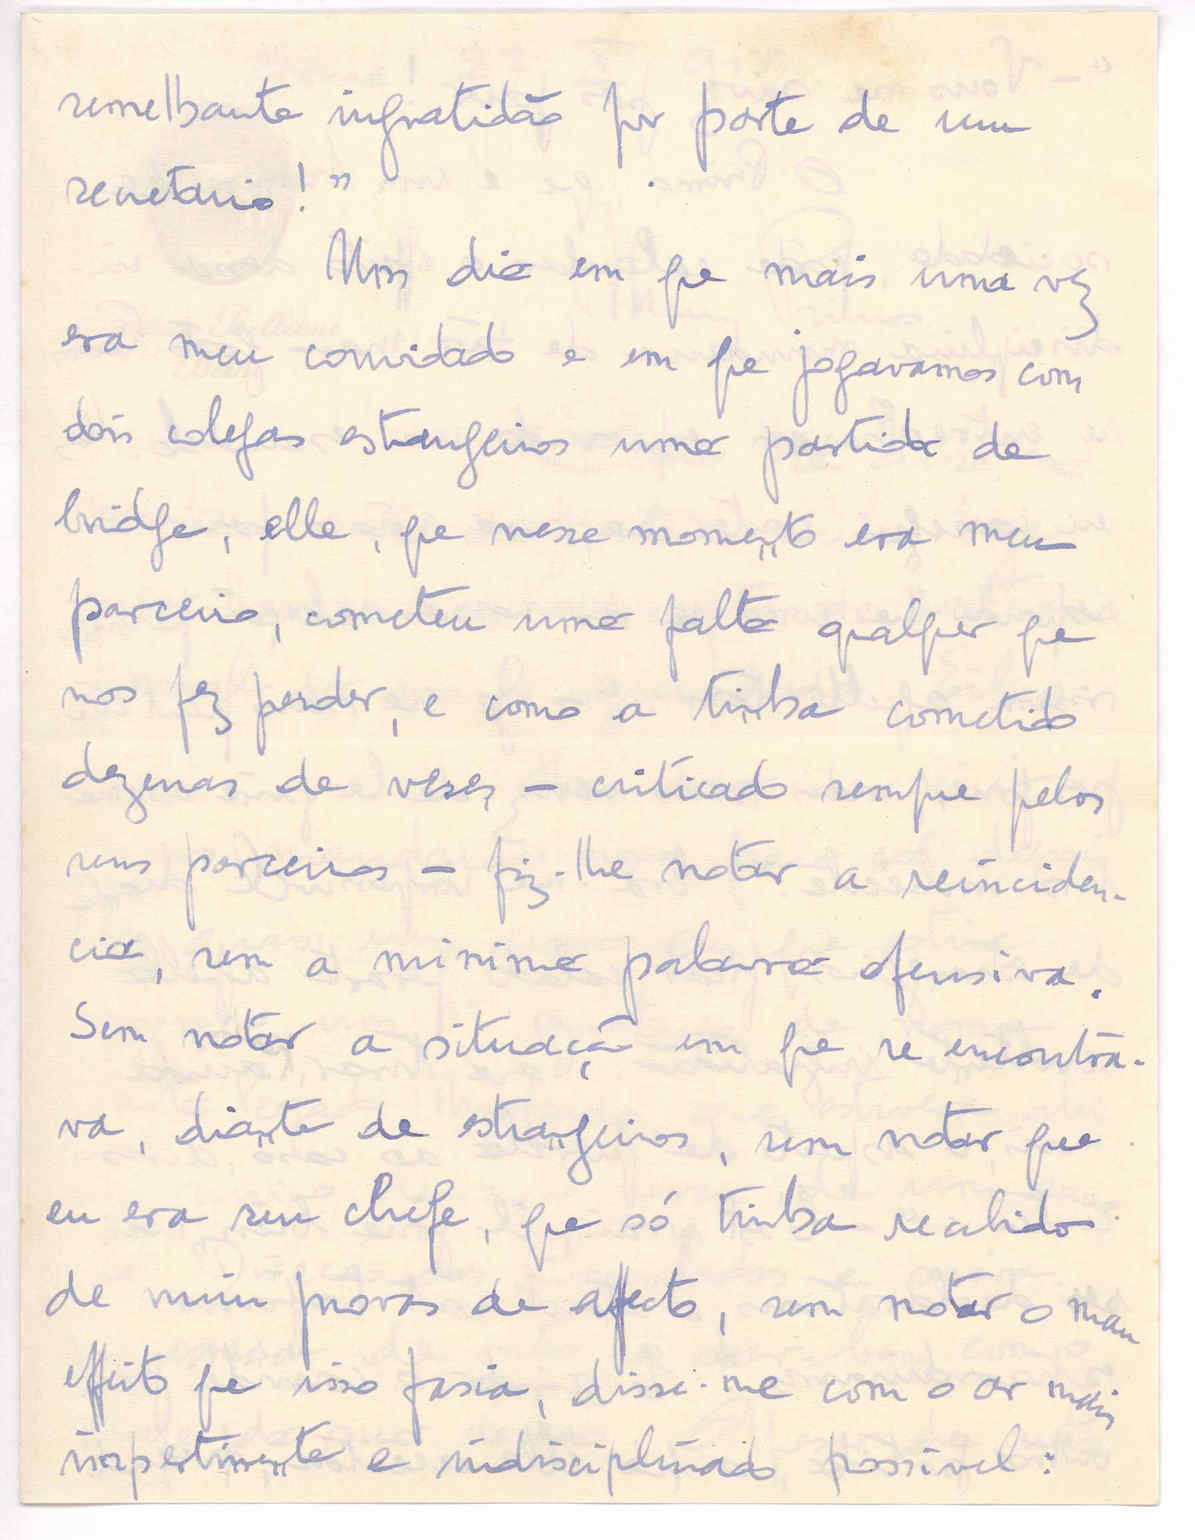 semelhante ingratidão por parte de um
secretario!"
Um dia em que mais uma vez
era meu convidado e em que jogavamos com
dois colegas estrangeiros uma partida de
bridge, elle, que nesse momento era meu
parceiro, cometeu uma falta qualquer que
nos fez perder, e como a tinha cometido
dezenas de vezes – criticado sempre pelos
seus parceiros – fiz-lhe notar a reinciden-
cia, sem a minima palavra ofensiva.
Sem notar a situação em que se encontra-
va, diante de estrangeiros, sem notar que
eu era seu chefe, que só tinha recebido
de mim provas de affecto, sem notar o mau
effeito que isso fasia, disse-me com o ar mais
impertinente e indisciplinado possivel: